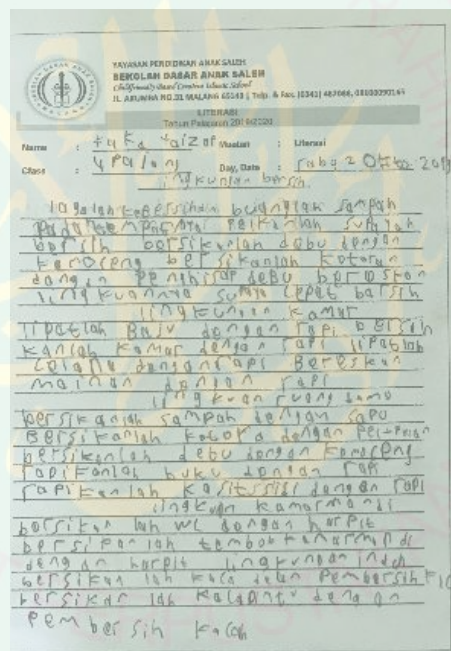 YAYASAN PENDIDIKAN ANAK SALEH
SEKOLAH DASAR ANAK SALEH
Childfriendly Based Creative Islamic School
JL. ARUMBA NO.31 MALANG 65143 | Telp. & Fax. (0341) 487088
LITERASI
Tahun Pelajaran 2019/2020
Name : Muatan : Literasi
Class : 4 Palong Day, Date : rabu 2 Okto 2019
lingkunlan bersih.
lagalah kebersihan buanglah sampah
Pada tempatnya Pelkanlah supayah
bersih bersikanlah debu dengan
kemoceng bersikanlah kotoran
dengan Penghisap debu
lingkuannya supaya cepat barsih
lingkungan kamar
lipatlah Baju dengan rapi bersih
kanlah kamar dengan rapi lipatlah
celana denganrapi Bereskan
mainan dengan rapi
lingkuan ruang tamu
bersikanlah sampah dengan sapu
Bersikanlah dengan
bersikanlah debu dengan komoceng
rapikanlah buku dengan rapi
rapikanlah dengan rapi
lingkuan kamarmandi
borsikan lah wc dongan harpic
bersikan lah tembok kamarmandi
dengan harpic lingkungan indah
bersikan lah kaca Pembersih
bersikan lah dengan
Pembersih kacah